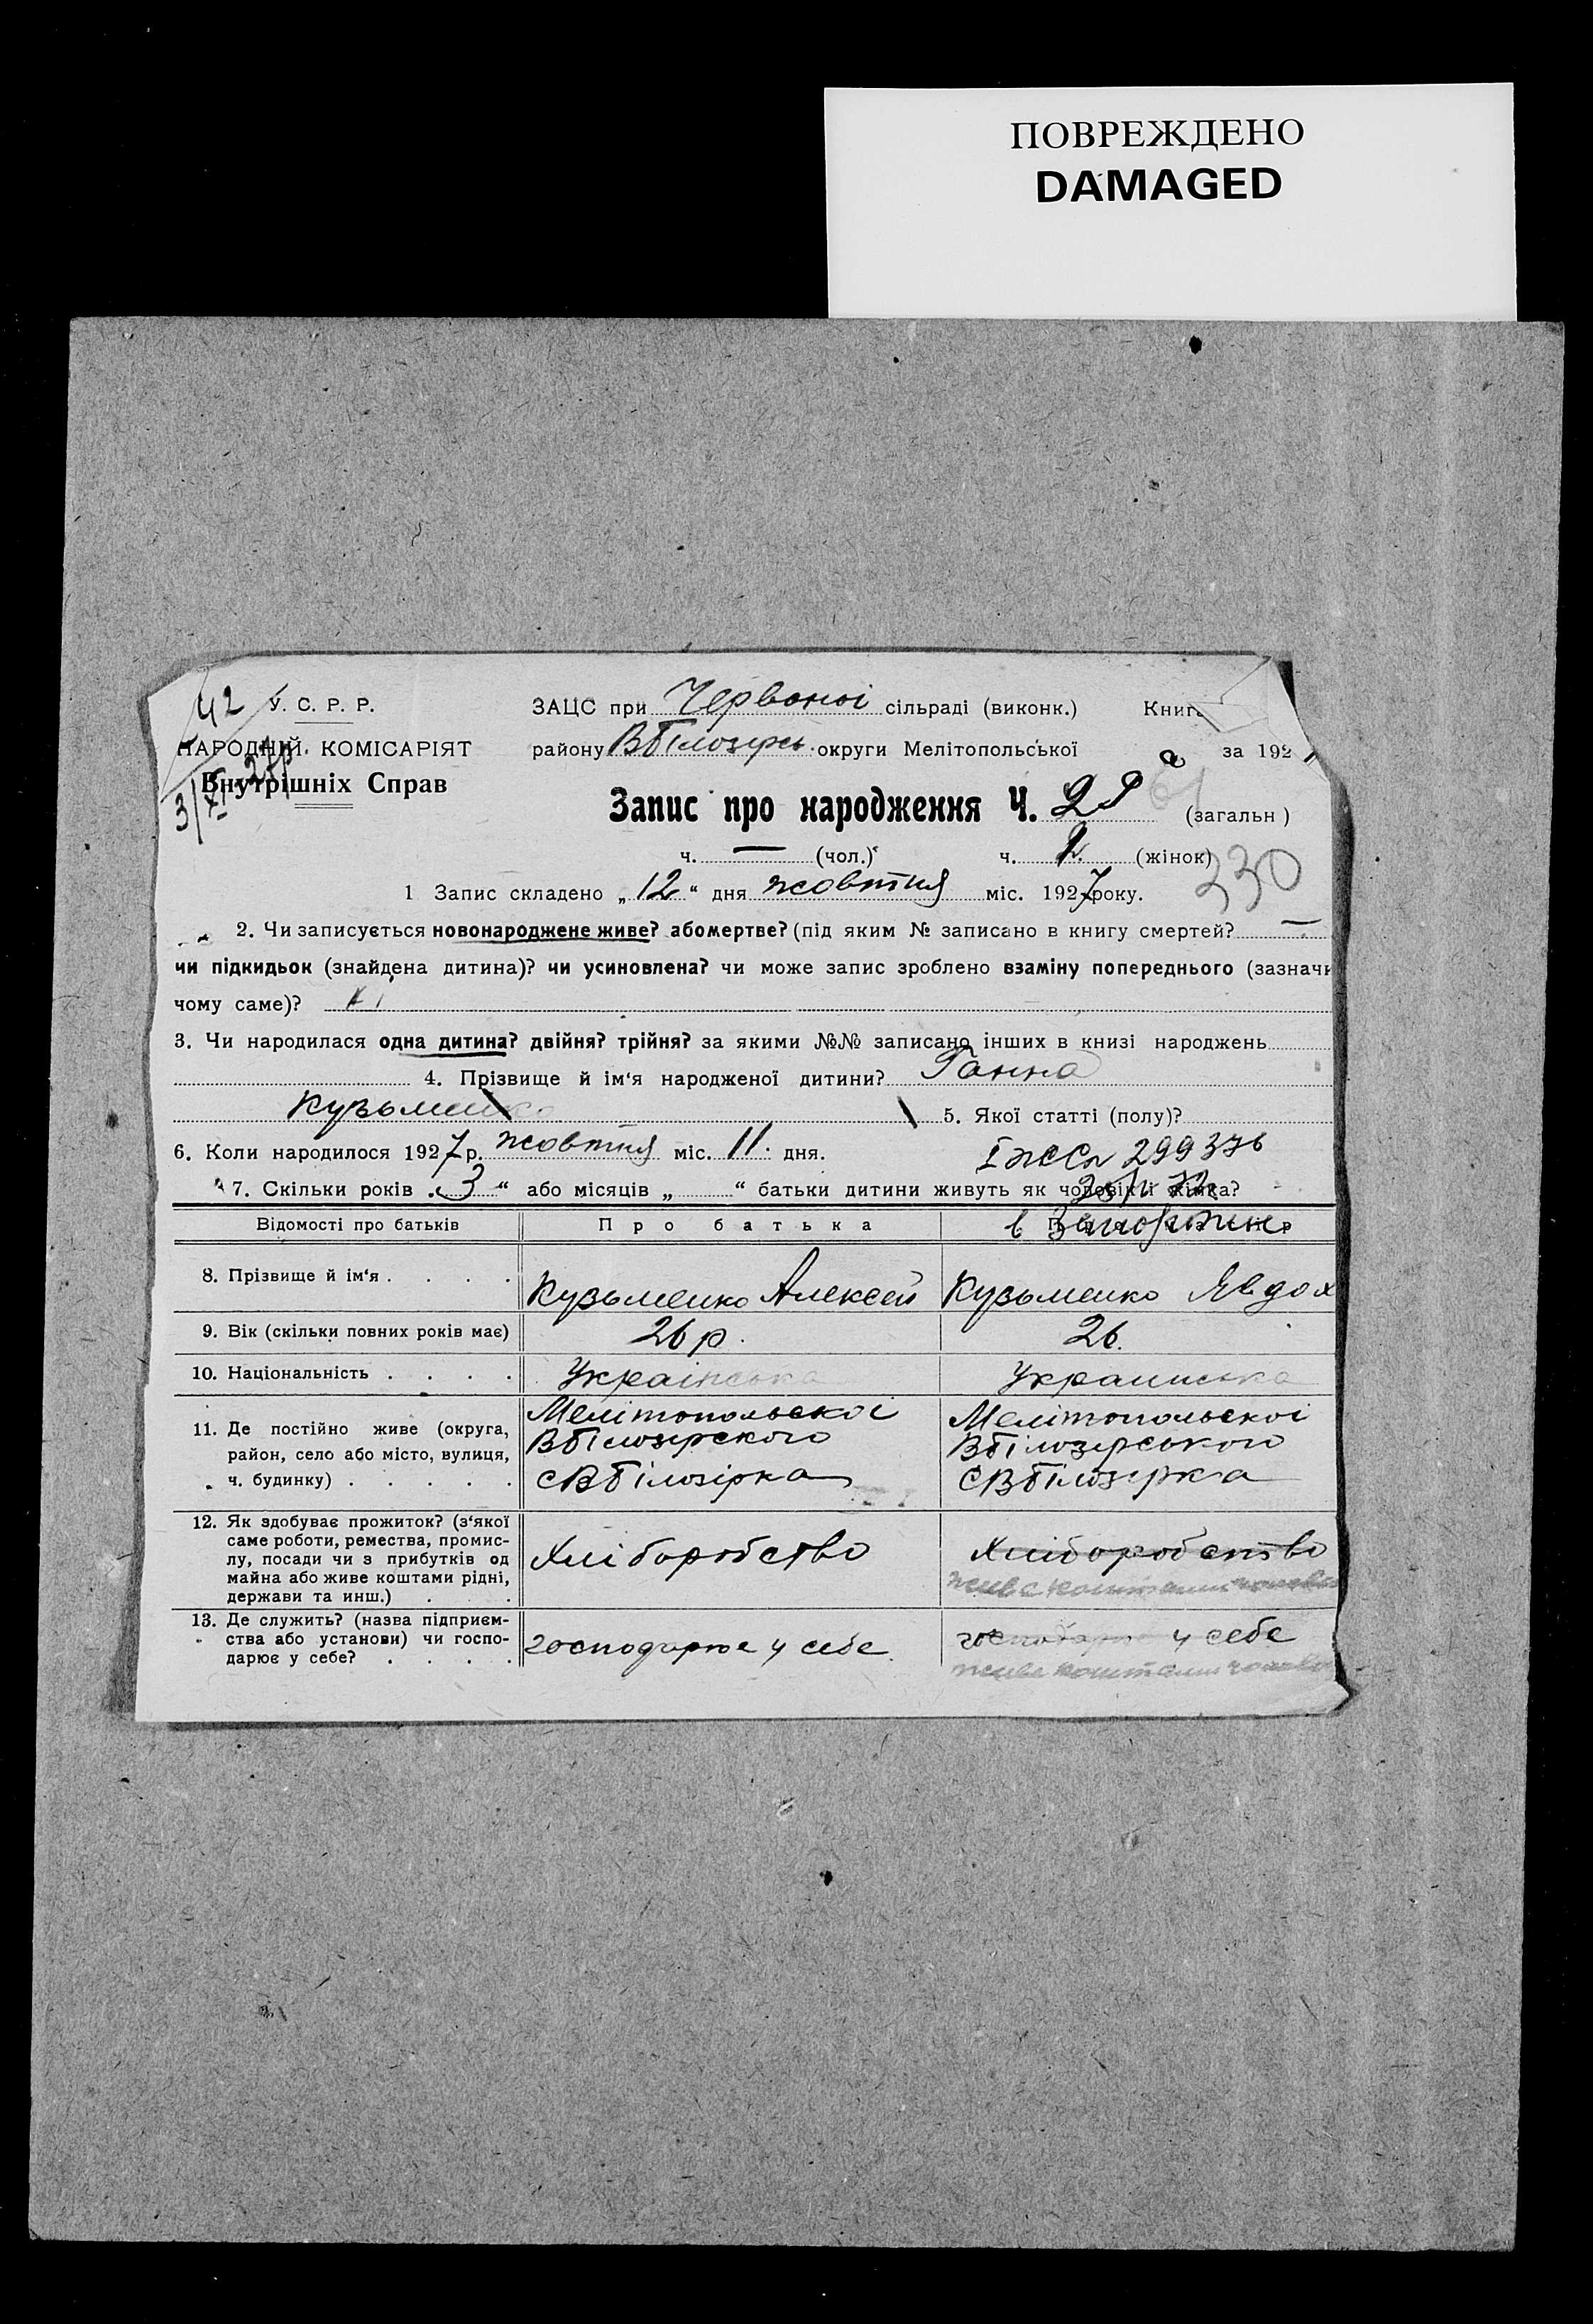 ПОВРЕЖДЕНО
DAMAGED
42 У. С. Р. Р.
НАРОДНІЙ КОМІСАРІЯТ
Внутрішніх Справ
ЗАЦС при Червоної сільраді (виконк.) Книга
району ВБілозірсь округи Мелітопольської за 192
Запис про народження Ч. (загальн)
ч. — (чол.) ч. (жінок)
330
1 Запис складено „12“ дня жовтня міс. 1927 року.
2. Чи записується новонароджене живе? або мертве? (під яким № записано в книгу смертей? —
чи підкидьок (знайдена дитина)? чи усиновлена? чи може запис зроблено взаміну попереднього (зазначи
чому саме)?
3. Чи народилася одна дитина? двійня? трійня? за якими №№ записано інших в книзі народжень
4. Прізвище й ім‘я народженої дитини? Ганна
Кузьменко 5. Якої статті (полу)?
6. Коли народилося 1927 р. жовтня міс. 11. дня.
299376
7. Скільки років „3“ або місяців „ “ батьки дитини живуть як чоловік і жінка?
Відомості про батьків Про батька
8. Прізвище й ім‘я . . . . Кузьменко Алексей Кузьменко Явдох
9. Вік (скільки повних років має) 26 р. 26.
10. Національність . . . . Українська Украинська
11. Де постійно живе (округа, район, село або місто, вулиця, ч. будинку) . . . . .
Мелітопольскої Мелітопольскої
ВБілозірского ВБілозірського
с ВБілозірка с ВБілозірка
12. Як здобуває прожиток? (з‘якої саме роботи, ремества, промислу, посади чи з прибутків од майна або живе коштами рідні, держави та инш.) . .
Хліборобство Хліборобство
живе коштами
13. Де служить? (назва підприємства або установи) чи господарює у себе? . . . .
господарює у себе господарює у себе
живе коштами